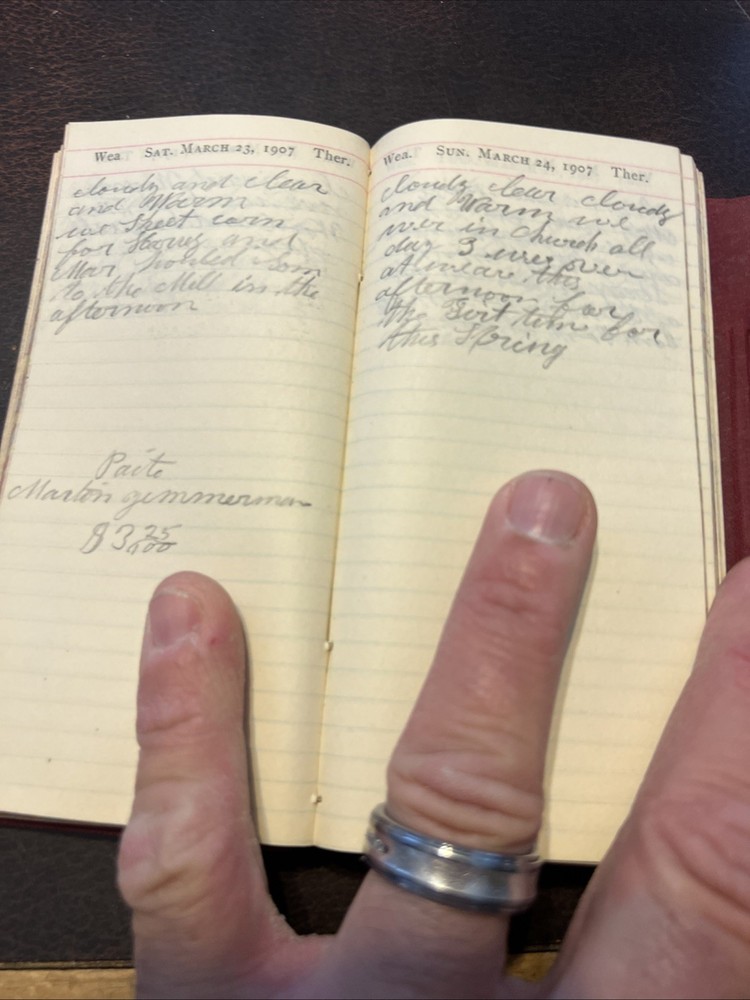 Wea. SAT. MARCH 23, 1907 Ther.
cloudy and clear
and Warm
we Sheet corn
for Storus and
Mar holded Som
to the Mill in the
afternoon
Paite
Martin Zimmerman
$3 25/100
Wea. SUN. MARCH 24, 1907 Ther.
cloudy clear cloudy
and Warm we
wer in Church all
day I was over
at this
afternoon for
the Girt time for
this Spring